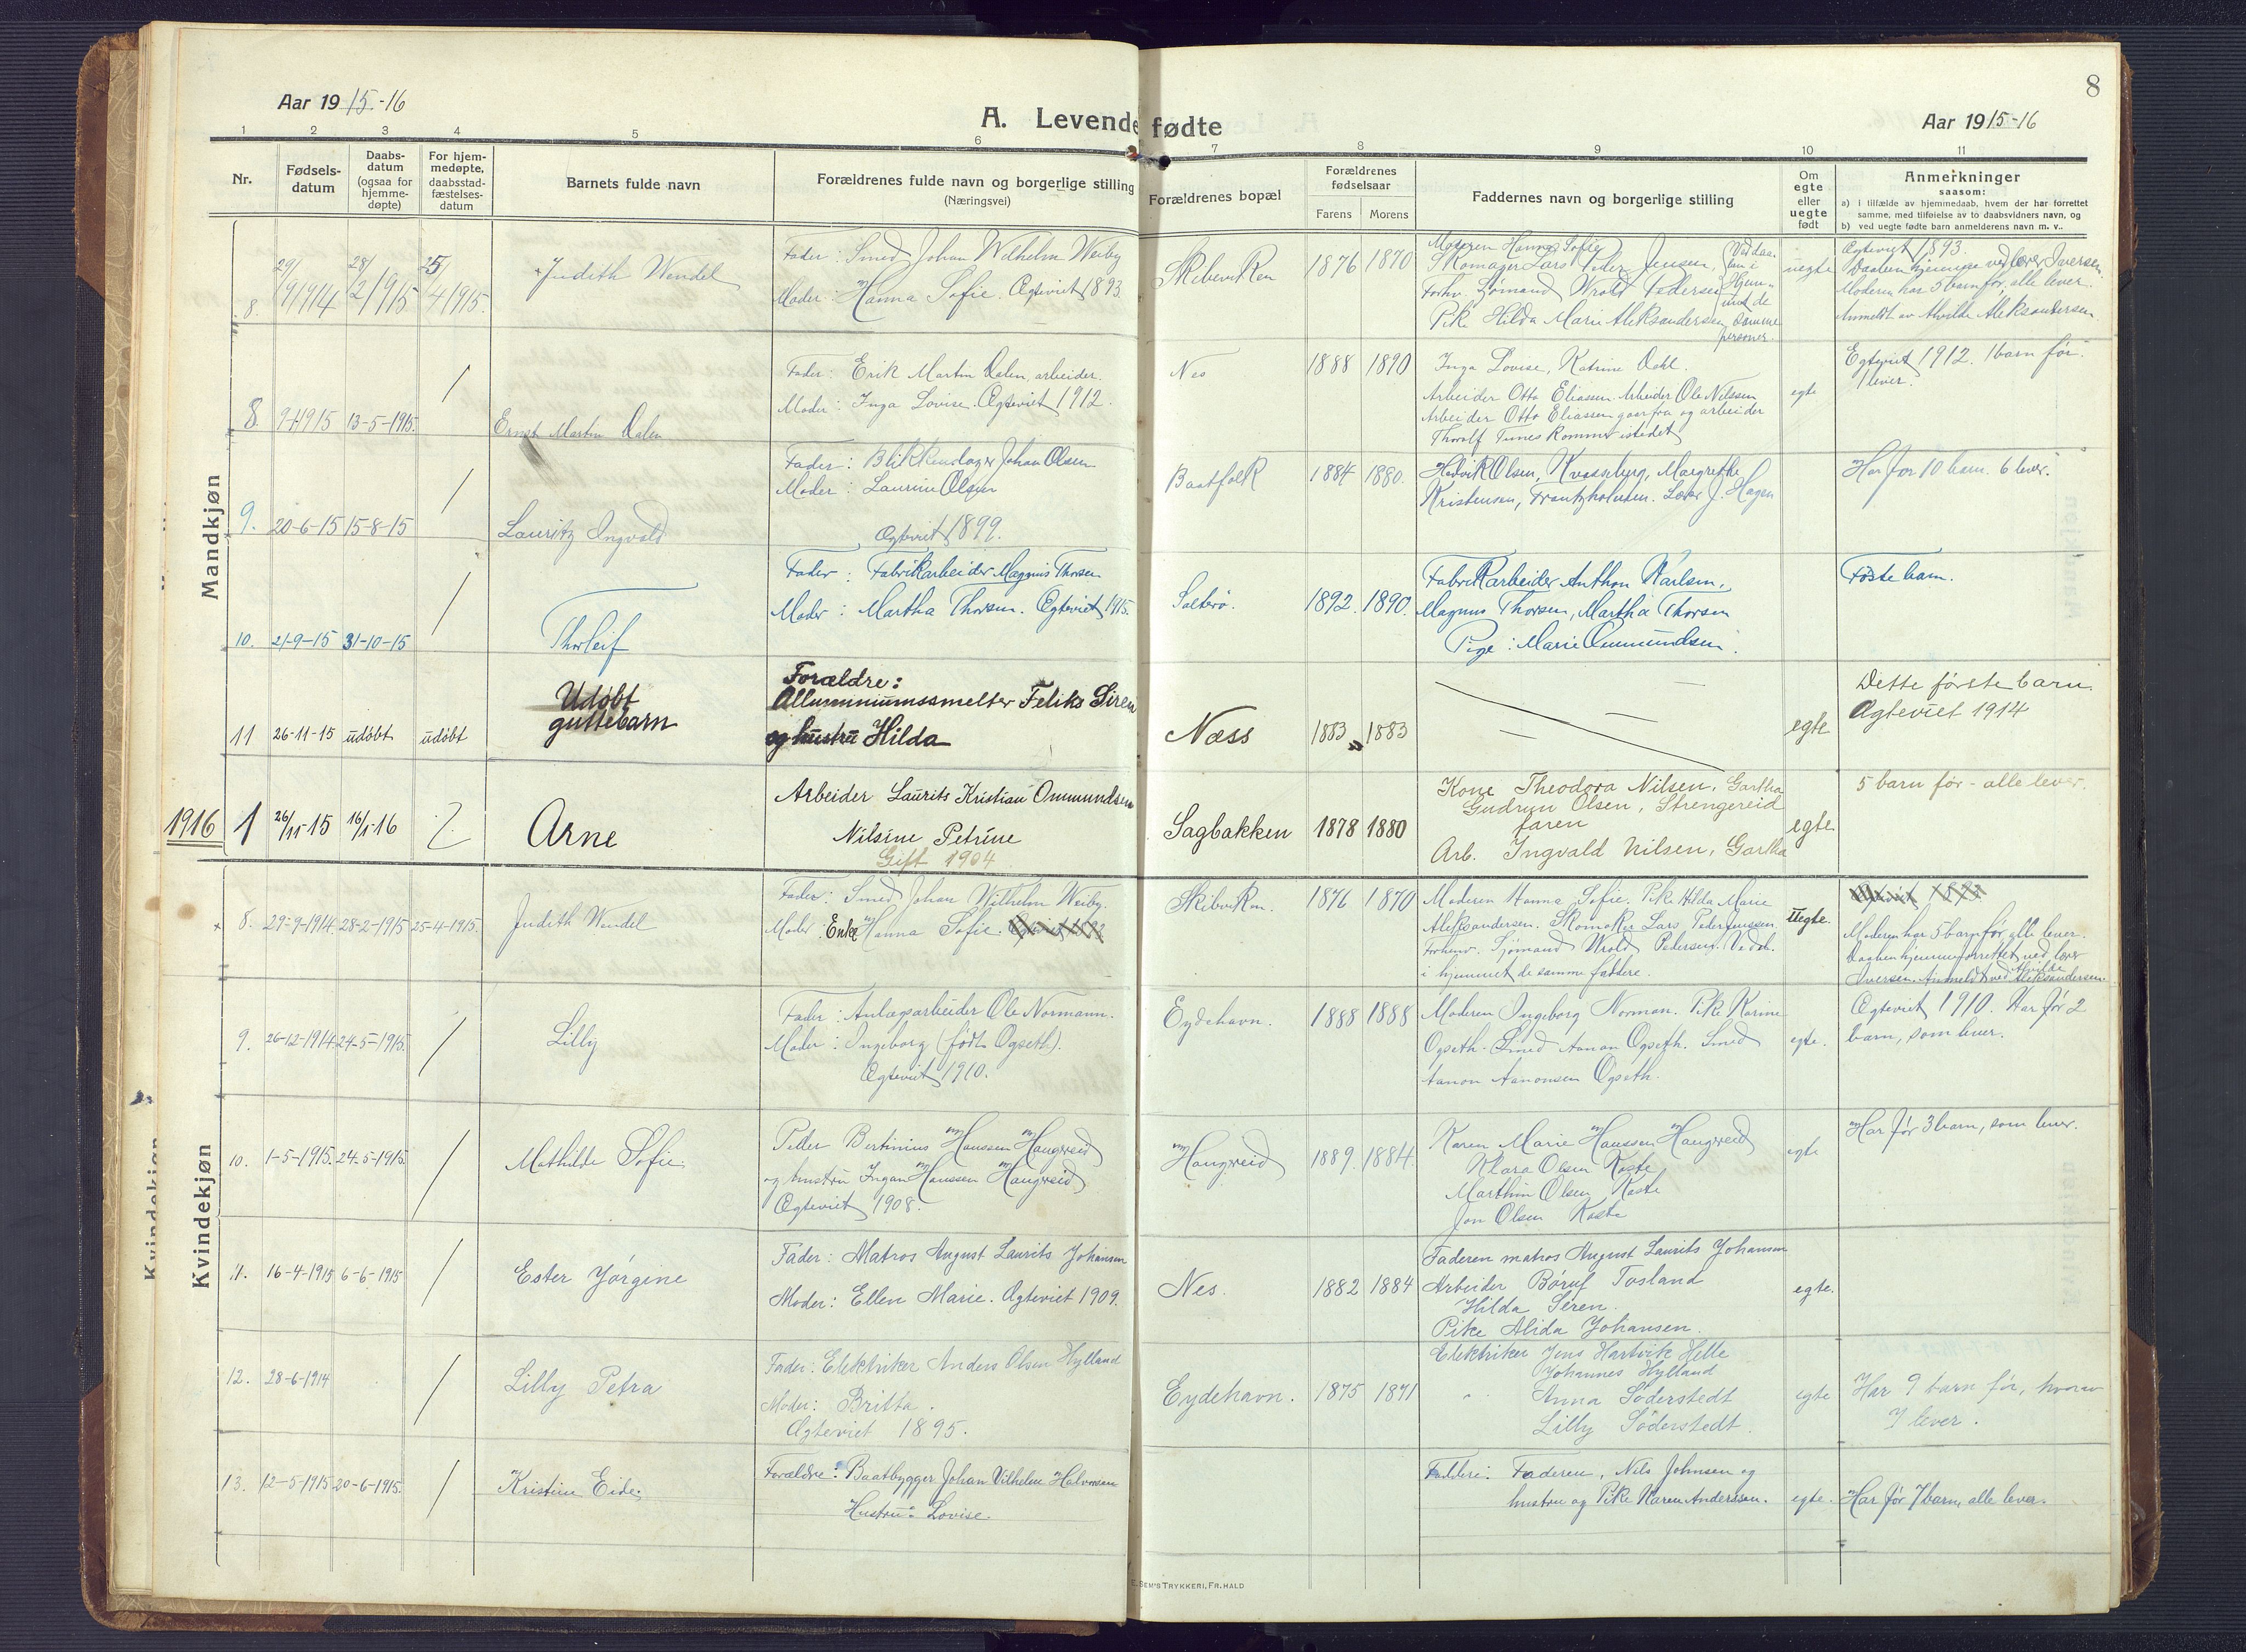 8
Aar 1915-16
A. Levende fødte
Aar 1915-16
1 2 3 4 5 6 7 8 9 10 11
Nr.
Fødsels-
datum
Daabs-
datum
(ogsaa for
hjemme-
døpte)
For hjem-
medøpte,
daabsstad-
fæstelses-
datum
Barnets fulde navn
Forældrenes fulde navn og borgerlige stilling
(Næringsvei)
Forældrenes bopæl
Forældrenes
fødselsaar
Farens Morens
Faddernes navn og borgerlige stilling
Om
egte
eller
uegte
født
Anmerkninger
saasom:
a) i tilfælde av hjemmedaab, hvem der har forrettet
samme, med tilføielse av to daabsvidners navn, og
b) ved uegte født barn anmelderens navn m. v..
Mandkjøn
8. 29/9 1914 28/2 1915 25/4 1915.
Judith Wendel
Fader: Smed Johan Wilhelm Weiby
Moder: Hanna Sofie. Ægteviet 1893.
Skibeviken
1876 1870
Moderen Hanna Sofie
Skomager Lars Peder Jensen,
Forhv. Sjømand Wrold Pedersen
Pike Hilda Marie Aleksandersen
Ved daa-
ben i
Hjem-
met de
samme
personer.
uegte
Ægteviet 1893.
Daaben hjemme ved lærer Iversen.
Moderen har 5 barn før, alle lever.
Anmeldt av Alvilde Aleksandersen
8. 9-4-1915 13-5-1915.
Ernst Martin Dalen
Fader: Erik Martin Dalen, arbeider.
Moder: Inga Lovise. Ægteviet 1912.
Nes
1888 1890
Inga Lovise, Katrine Dahl.
Arbeider Otto Eliassen. Arbeider Ole Nilssen
Arbeider Otto Eliassen gaar fra og arbeider
Thorolf Tunes kommer istedet
egte
Egteviet 1912. 1 barn før.
1 lever.
9. 20-6-15 15-8-15
Lauritz Ingvald
Fader: Blikkenslager Johan Olsen
Moder: Laurine Olsen
Ægteviet 1899.
Baatfolk
1884 1880.
Hedvik Olsen, Kvasseberg, Margrethe
Kristensen, Frantzholmen. Lærer J. Hagen
Har før 10 barn. 6 lever.
10. 21-9-15 31-10-15
Thorleif
Fader: Fabrikarbeider Magnus Thorsen
Moder: Martha Thorsen. Egteviet 1915.
Salterø.
1892. 1890.
Fabrikarbeider Anthon Karlsen,
Magnus Thorsen, Martha Thorsen
Pige: Marie Ommundsen.
Første barn.
11 26-11-15 udøbt udøbt
Udøbt
guttebarn
Forældre:
Alluminiumssmelter Feliks Siren
og hustru Hilda
Næss
1883 1883
egte
Dette første barn.
Ægteviet 1914
1916 1 26/11-15 16/1-16
Arne
Arbeider Laurits Kristian Ommundsen
Nilsine Petrine
Gift 1904
Sagbakken
1878 1880
Kone Theodora Nilsen, Gartha
Gudrun Olsen, Strengereid
faren
Arb. Ingvald Nilsen, Gartha
egte
5 barn før - alle lever.
Kvindekjøn
8. 29-9-1914 28-2-1915 25-4-1915.
Judith Wendel
Fader: Smed Johan Wilhelm Weiby.
Moder: Enke Hanna Sofie.
Skibviken.
1876 1870
Moderen Hanna Sofie. Pike Hilda Marie
Aleksandersen. Skomaker Lars Peder Jenssen
Forhenv. Sjømand Wrold Pedersen. Ved d.
i hjemmet de samme faddere.
uegte.
Moderen har 5 barn før, alle lever.
Daaben hjemme forrettet ved lærer
Iversen. Anmeldt ved Alvilde Aleksandersen.
9. 26-12-1914 24-5-1915.
Lilly
Fader: Anlægsarbeider Ole Normann.
Moder: Ingeborg (født Ogseth).
Ægteviet 1910.
Eydehavn.
1888 1888
Moderen Ingeborg Norman. Pike Karine
Ogseth. Smed Aanon Ogseth. Smed
Aanon Aanonsen Ogseth.
egte.
Ægteviet 1910. Har før 2
barn, som lever.
10. 1-5-1915. 24-5-1915
Mathilde Sofie.
Peder Bertinius Hanssen Haugreid
og hustru Ingan Hanssen Haugreid
Ægteviet 1908.
Haugreid
1889. 1884.
Karen Marie Hanssen Haugreid
Klara Olsen Kaste
Marthin Olsen Kaste
Jon Olsen Kaste
egte
Har før 3 barn, som lever.
11. 16-4-1915 6-6-1915
Ester Jørgine
Fader: Matros August Laurits Johansen
Moder: Ellen Marie. Ægteviet 1909.
Nes.
1882 1884
Faderen matros August Laurits Johansen
Arbeider Børuf Tosland
Hilda Siren.
Pike Alida Johansen.
egte.
12. 28-6-1914
Lilly Petra
Fader: Elektriker Anders Olsen Hylland
Moder: Britta.
Ægteviet 1895.
Eydehavn.
1875 1871
Elektriker Jens Hartvik Helle
Johannes Hylland
Anna Söderstedt
Lilly Söderstedt.
egte
Har 9 barn før, hvorav
7 lever.
13. 12-5-1915 20-6-1915.
Kristine Eide.
Forældre: Baatbygger Johan Vilhelm Halvorsen
Hustru: Lovise.
Faddere: Faderen, Nils Johnsen og
hustru og Pike Karen Anderssen.
egte.
Har før 7 barn, alle lever.
SEM'S TRYKKERI, FR.HALD